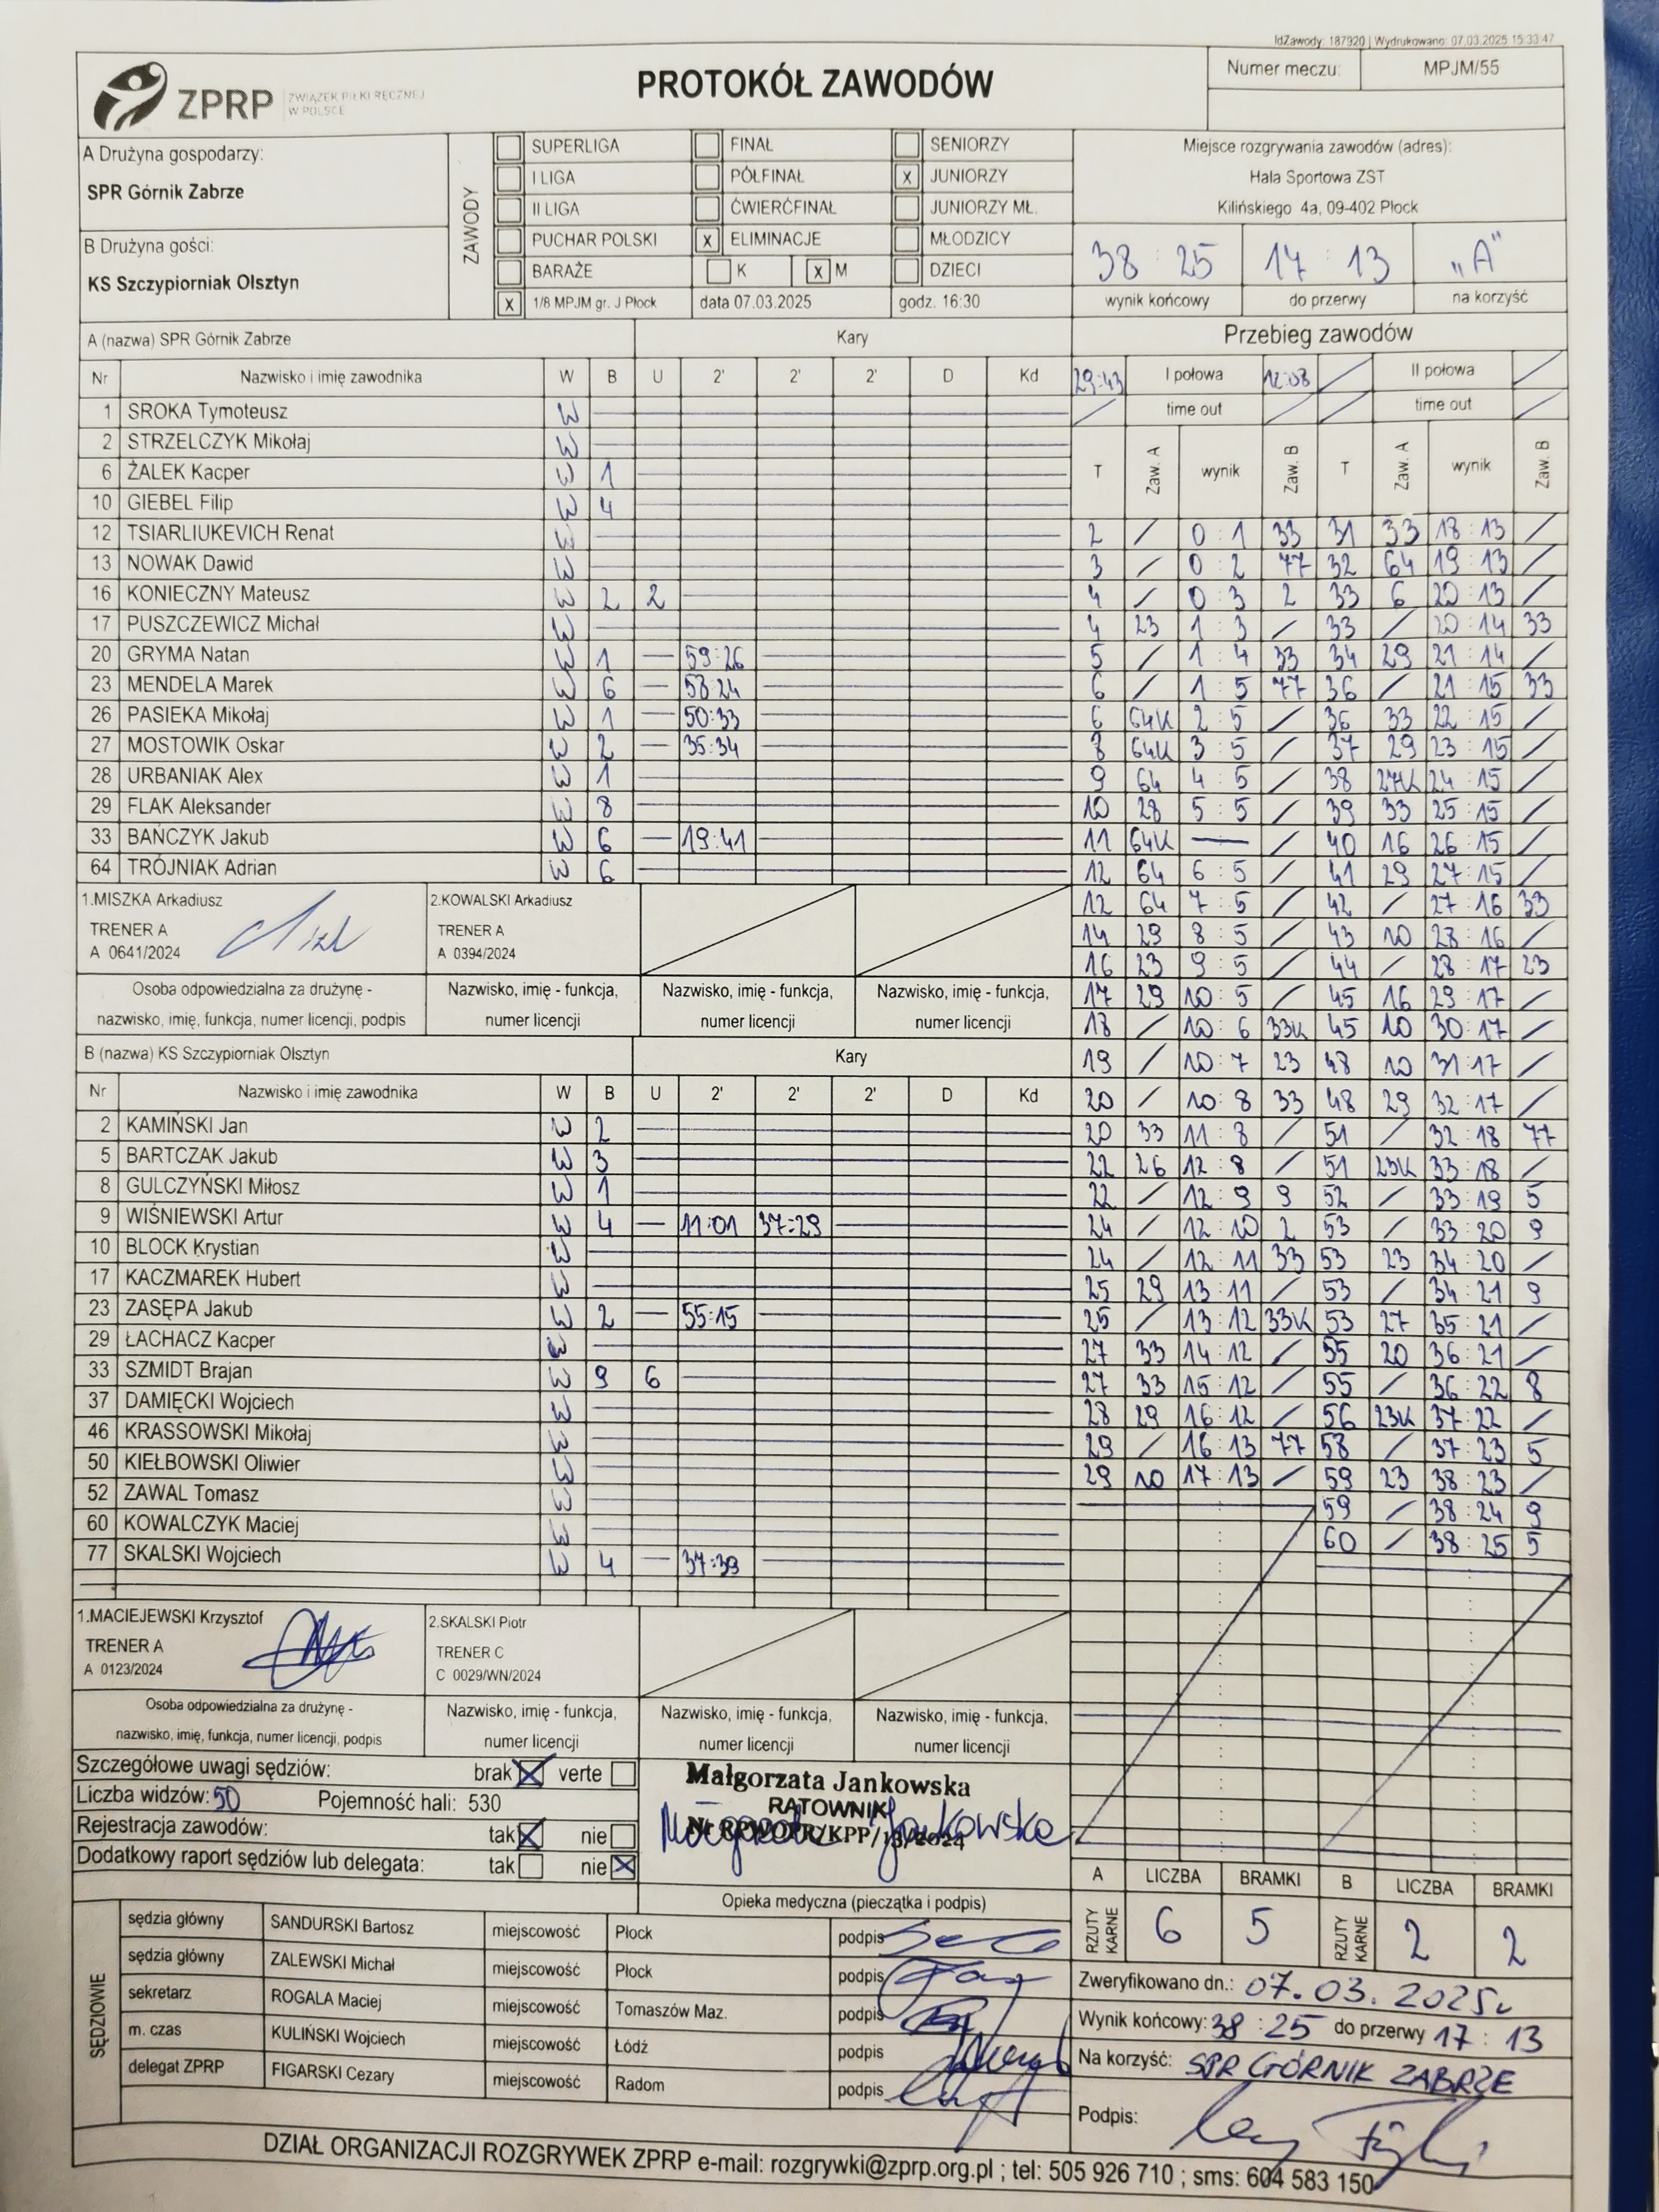 IdZawody: 187920 | Wydrukowano: 07.03.2025 15:33:47
ZPRP ZWIĄZEK PIŁKI RĘCZNEJ W POLSCE
PROTOKÓŁ ZAWODÓW
Numer meczu: MPJM/55
A Drużyna gospodarzy:
SPR Górnik Zabrze
B Drużyna gości:
KS Szczypiorniak Olsztyn
ZAWODY
SUPERLIGA FINAŁ SENIORZY
I LIGA PÓŁFINAŁ X JUNIORZY
II LIGA ĆWIERĆFINAŁ JUNIORZY MŁ.
PUCHAR POLSKI X ELIMINACJE MŁODZICY
BARAŻE K X M DZIECI
X 1/8 MPJM gr. J Płock data 07.03.2025 godz. 16:30
Miejsce rozgrywania zawodów (adres):
Hala Sportowa ZST
Kilińskiego 4a, 09-402 Płock
38 : 25 17 : 13 „A"
wynik końcowy do przerwy na korzyść
A (nazwa) SPR Górnik Zabrze Kary
Nr Nazwisko i imię zawodnika W B U 2' 2' 2' D Kd
1 SROKA Tymoteusz W
2 STRZELCZYK Mikołaj W
6 ŻALEK Kacper W 1
10 GIEBEL Filip W 4
12 TSIARLIUKEVICH Renat W
13 NOWAK Dawid W
16 KONIECZNY Mateusz W 2 2
17 PUSZCZEWICZ Michał W
20 GRYMA Natan W 1 — 59:26
23 MENDELA Marek W 6 — 58:24
26 PASIEKA Mikołaj W 1 — 50:33
27 MOSTOWIK Oskar W 2 — 35:34
28 URBANIAK Alex W 1
29 FLAK Aleksander W 8
33 BAŃCZYK Jakub W 6 — 19:41
64 TRÓJNIAK Adrian W 6
1.MISZKA Arkadiusz
TRENER A
A 0641/2024
2.KOWALSKI Arkadiusz
TRENER A
A 0394/2024
Osoba odpowiedzialna za drużynę -
nazwisko, imię, funkcja, numer licencji, podpis
Nazwisko, imię - funkcja,
numer licencji
Nazwisko, imię - funkcja,
numer licencji
Nazwisko, imię - funkcja,
numer licencji
B (nazwa) KS Szczypiorniak Olsztyn Kary
Nr Nazwisko i imię zawodnika W B U 2' 2' 2' D Kd
2 KAMIŃSKI Jan W 2
5 BARTCZAK Jakub W 3
8 GULCZYŃSKI Miłosz W 1
9 WIŚNIEWSKI Artur W 4 — 11:01 37:29
10 BLOCK Krystian W
17 KACZMAREK Hubert W
23 ZASĘPA Jakub W 2 — 55:15
29 ŁACHACZ Kacper W
33 SZMIDT Brajan W 9 6
37 DAMIĘCKI Wojciech W
46 KRASSOWSKI Mikołaj W
50 KIEŁBOWSKI Oliwier W
52 ZAWAL Tomasz W
60 KOWALCZYK Maciej W
77 SKALSKI Wojciech W 4 — 37:39
1.MACIEJEWSKI Krzysztof
TRENER A
A 0123/2024
2.SKALSKI Piotr
TRENER C
C 0029/WN/2024
Osoba odpowiedzialna za drużynę -
nazwisko, imię, funkcja, numer licencji, podpis
Nazwisko, imię - funkcja,
numer licencji
Nazwisko, imię - funkcja,
numer licencji
Nazwisko, imię - funkcja,
numer licencji
Przebieg zawodów
29:43 I połowa 12:08 / II połowa /
/ time out / / time out /
T Zaw. A wynik Zaw. B T Zaw. A wynik Zaw. B
2 / 0 : 1 33 31 33 18 : 13 /
3 / 0 : 2 77 32 64 19 : 13 /
4 / 0 : 3 2 33 6 20 : 13 /
4 23 1 : 3 / 33 / 20 : 14 33
5 / 1 : 4 33 34 29 21 : 14 /
6 / 1 : 5 77 36 / 21 : 15 33
6 64K 2 : 5 / 36 33 22 : 15 /
8 64K 3 : 5 / 37 29 23 : 15 /
9 64 4 : 5 / 38 27K 24 : 15 /
10 28 5 : 5 / 39 33 25 : 15 /
11 64K — / 40 16 26 : 15 /
12 64 6 : 5 / 41 29 27 : 15 /
12 64 7 : 5 / 42 / 27 : 16 33
14 29 8 : 5 / 43 10 28 : 16 /
16 23 9 : 5 / 44 / 28 : 17 23
17 29 10 : 5 / 45 16 29 : 17 /
18 / 10 : 6 33K 45 10 30 : 17 /
19 / 10 : 7 23 48 10 31 : 17 /
20 / 10 : 8 33 48 29 32 : 17 /
20 33 11 : 8 / 51 / 32 : 18 77
22 26 12 : 8 / 51 23K 33 : 18 /
22 / 12 : 9 9 52 / 33 : 19 5
24 / 12 : 10 2 53 / 33 : 20 9
24 / 12 : 11 33 53 23 34 : 20 /
25 29 13 : 11 / 53 / 34 : 21 9
25 / 13 : 12 33K 53 27 35 : 21 /
27 33 14 : 12 / 55 20 36 : 21 /
27 33 15 : 12 / 55 / 36 : 22 8
28 29 16 : 12 / 56 23K 37 : 22 /
29 / 16 : 13 77 58 / 37 : 23 5
29 10 17 : 13 / 59 23 38 : 23 /
59 / 38 : 24 9
60 / 38 : 25 5
Szczegółowe uwagi sędziów: brak X verte
Liczba widzów: 50 Pojemność hali: 530
Rejestracja zawodów: tak X nie
Dodatkowy raport sędziów lub delegata: tak nie X
Małgorzata Jankowska
RATOWNIK
Małgorzata Jankowska
Opieka medyczna (pieczątka i podpis)
A LICZBA BRAMKI B LICZBA BRAMKI
RZUTY KARNE 6 5 RZUTY KARNE 2 2
SĘDZIOWIE
sędzia główny SANDURSKI Bartosz miejscowość Płock podpis
sędzia główny ZALEWSKI Michał miejscowość Płock podpis
sekretarz ROGALA Maciej miejscowość Tomaszów Maz. podpis
m. czas KULIŃSKI Wojciech miejscowość Łódź podpis
delegat ZPRP FIGARSKI Cezary miejscowość Radom podpis
Zweryfikowano dn.: 07.03.2025r
Wynik końcowy: 38 : 25 do przerwy 17 : 13
Na korzyść: SPR GÓRNIK ZABRZE
Podpis:
DZIAŁ ORGANIZACJI ROZGRYWEK ZPRP e-mail: rozgrywki@zprp.org.pl ; tel: 505 926 710 ; sms: 604 583 150